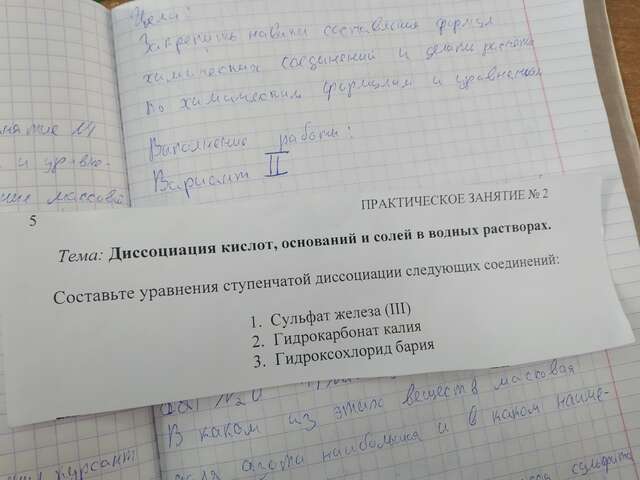 Цели:
Закрепить навыки составления формул
химических соединений и делать расчёты
по химическим формулам и уравнениям
Выполнение работы:
Вариант II
5
ПРАКТИЧЕСКОЕ ЗАНЯТИЕ № 2
Тема: Диссоциация кислот, оснований и солей в водных растворах.
Составьте уравнения ступенчатой диссоциации следующих соединений:
1. Сульфат железа (III)
2. Гидрокарбонат калия
3. Гидроксохлорид бария
N2O
В каком из этих веществ массовая
азота наибольшая и в каком наиме-
курсант